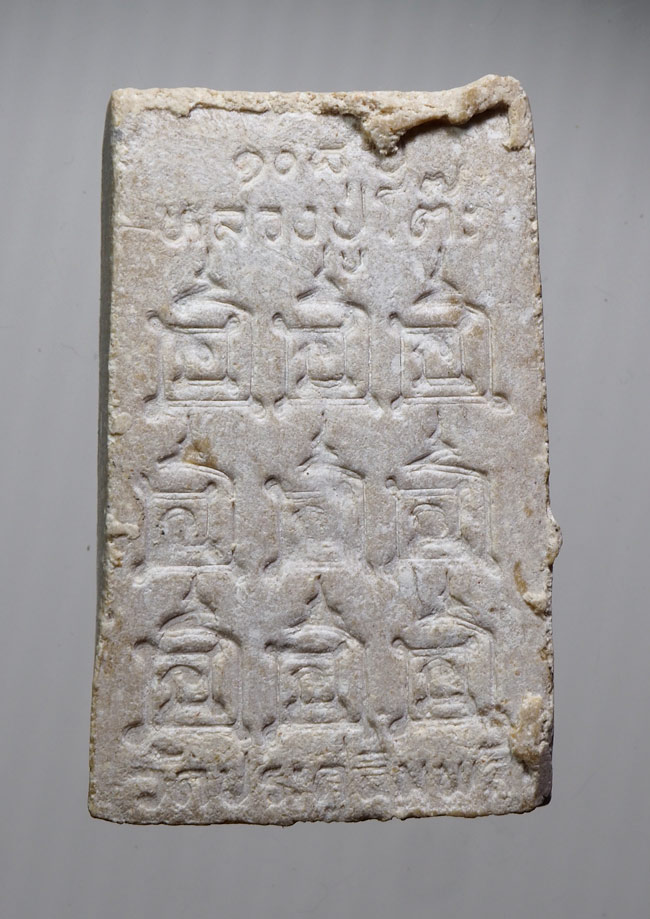 ๑๐๘
หลวงปู่โต๊ะ
วัดประดู่ฉิมพลี